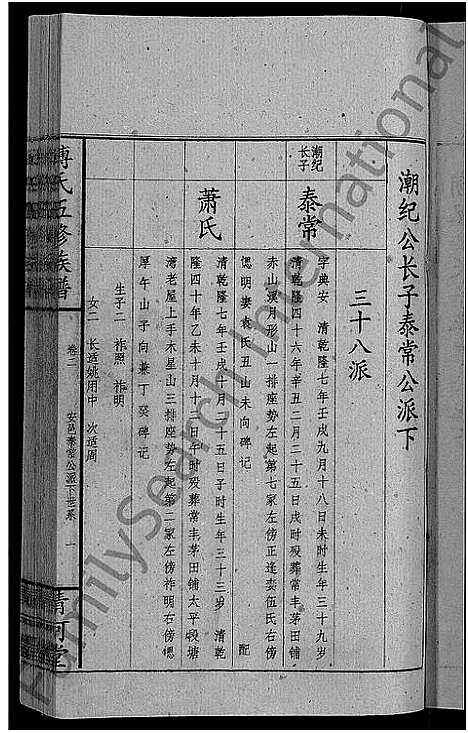 潮纪公长子泰常公派下
三十八派
潮纪长子
泰常
字典安 清乾隆七年壬戌九月十八日未时生年三十九岁
清乾隆四十六年辛丑二月二十五日戌时殁葬常丰茅田铺
赤山溪月形山一排座势左起第七冢左傍正逢娄伍氏右傍
偲明妻袁氏丑山未向碑记 配
萧氏
清乾隆七年壬戌十月二十五日子时生年三十三岁 清乾
隆四十年乙未十月十二日午时殁葬常丰茅田铺太平段塘
湾老屋上手木星山三排座势左起第二冢左傍祚明右傍偲
厚午山子向兼丁癸碑记
生子二 祚照 祚明
女二 长适姚用中 次适周
傅氏五修族谱
卷三
安邑泰常公派下世系 一
清河堂
FamilySearch International